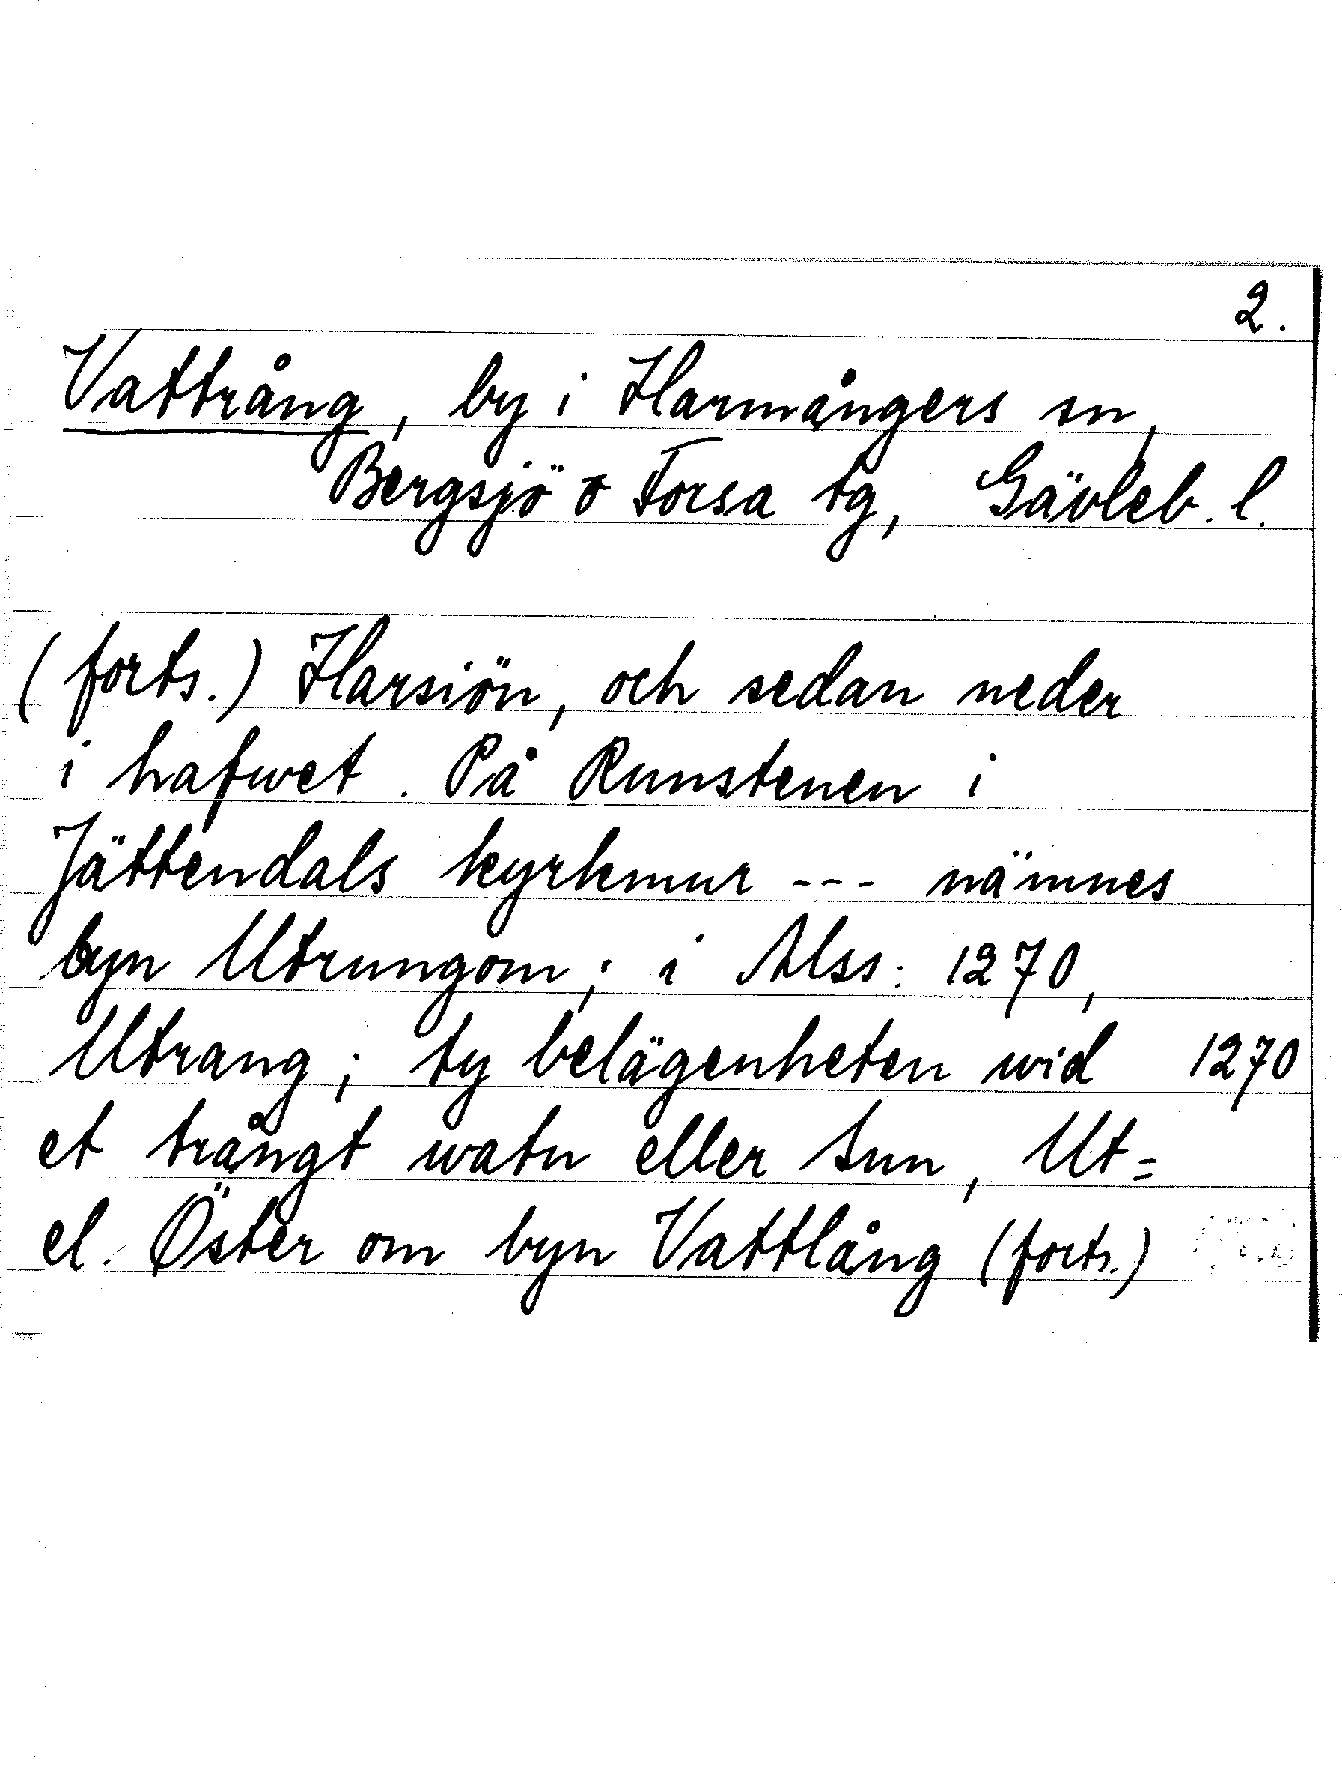 2.
Vattrång, by i Harmångers sn,
Bergsjö o Forsa tg, Gävleb. l.
(forts.) Harsiön, och sedan neder
i hafwet. På Runstenen i
Jättendals kyrkmur --- nämnes
byn Utrungom; i Mss: 1270,
Utrang; ty belägenheten wid 1270
et trångt watn eller Sun, Ut=
el. Öster om byn Vattlång (forts.)